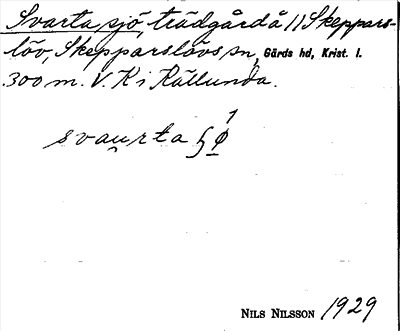 Svarta sjö, trädgård å 11 Skeppars-
löv, Skepparslövs sn, Gärds hd, Krist. l.
300 m. V. K i Rällunda.
1
svau̯rta ʃø
NILS NILSSON 1929